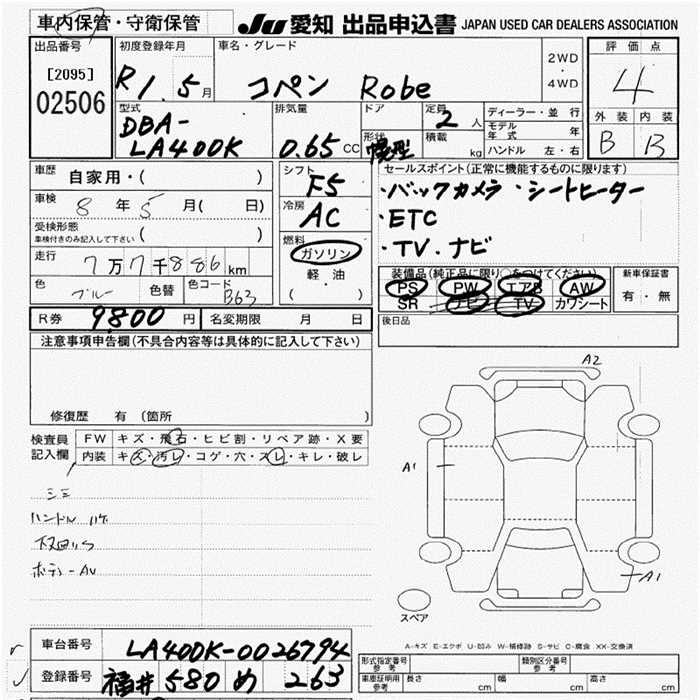 車内保管・守衛保管 JU 愛知 出品申込書 JAPAN USED CAR DEALERS ASSOCIATION
出品番号 初度登録年月 車名・グレード 評価点
[2095] R1.5月 コペン Robe 2WD・4WD 4
02506
型式 排気量 ドア 定員 ディーラー・並行 外装 内装
DBA- 2人 モデル年式 年 B B
LA400K 0.65CC 形状 積載 kg ハンドル 左・右
車歴 自家用・( ) シフト F5 セールスポイント(正常に機能するものに限ります)
車検 8年5月( 日) 冷房 AC ・バックカメラ・シートヒーター
受検形態 ( ) ・ETC
車検付きのみ記入して下さい 燃料 ・TV.ナビ
走行 7万7千886km ガソリン 装備品(純正品に限り○をつけてください) 新車保証書
軽油 PS PW エアB AW 有・無
色 ブルー 色替 色コード B63 ( ・ ) SR ナビ TV カワシート
R券 9,800円 名変期限 月 日 後日品
注意事項申告欄(不具合内容等は具体的に記入して下さい)
修復歴 有 (箇所 )
A2
検査員 FW キズ・飛石・ヒビ割・リペア跡・X要
記入欄 内装 キズ・汚レ・コゲ・穴・スレ・キレ・破レ
A1
シミ
ハンドル
A1
スペア
A-キズ E-エクボ U-凹み W-補修跡 S-サビ C-腐食 XX-交換済
車台番号 LA400K-0026794 形式指定番号 参考 類別区分番号 参考
登録番号 福井 580 め 263 車庫証明用 参考 長さ cm 幅 cm 高さ cm